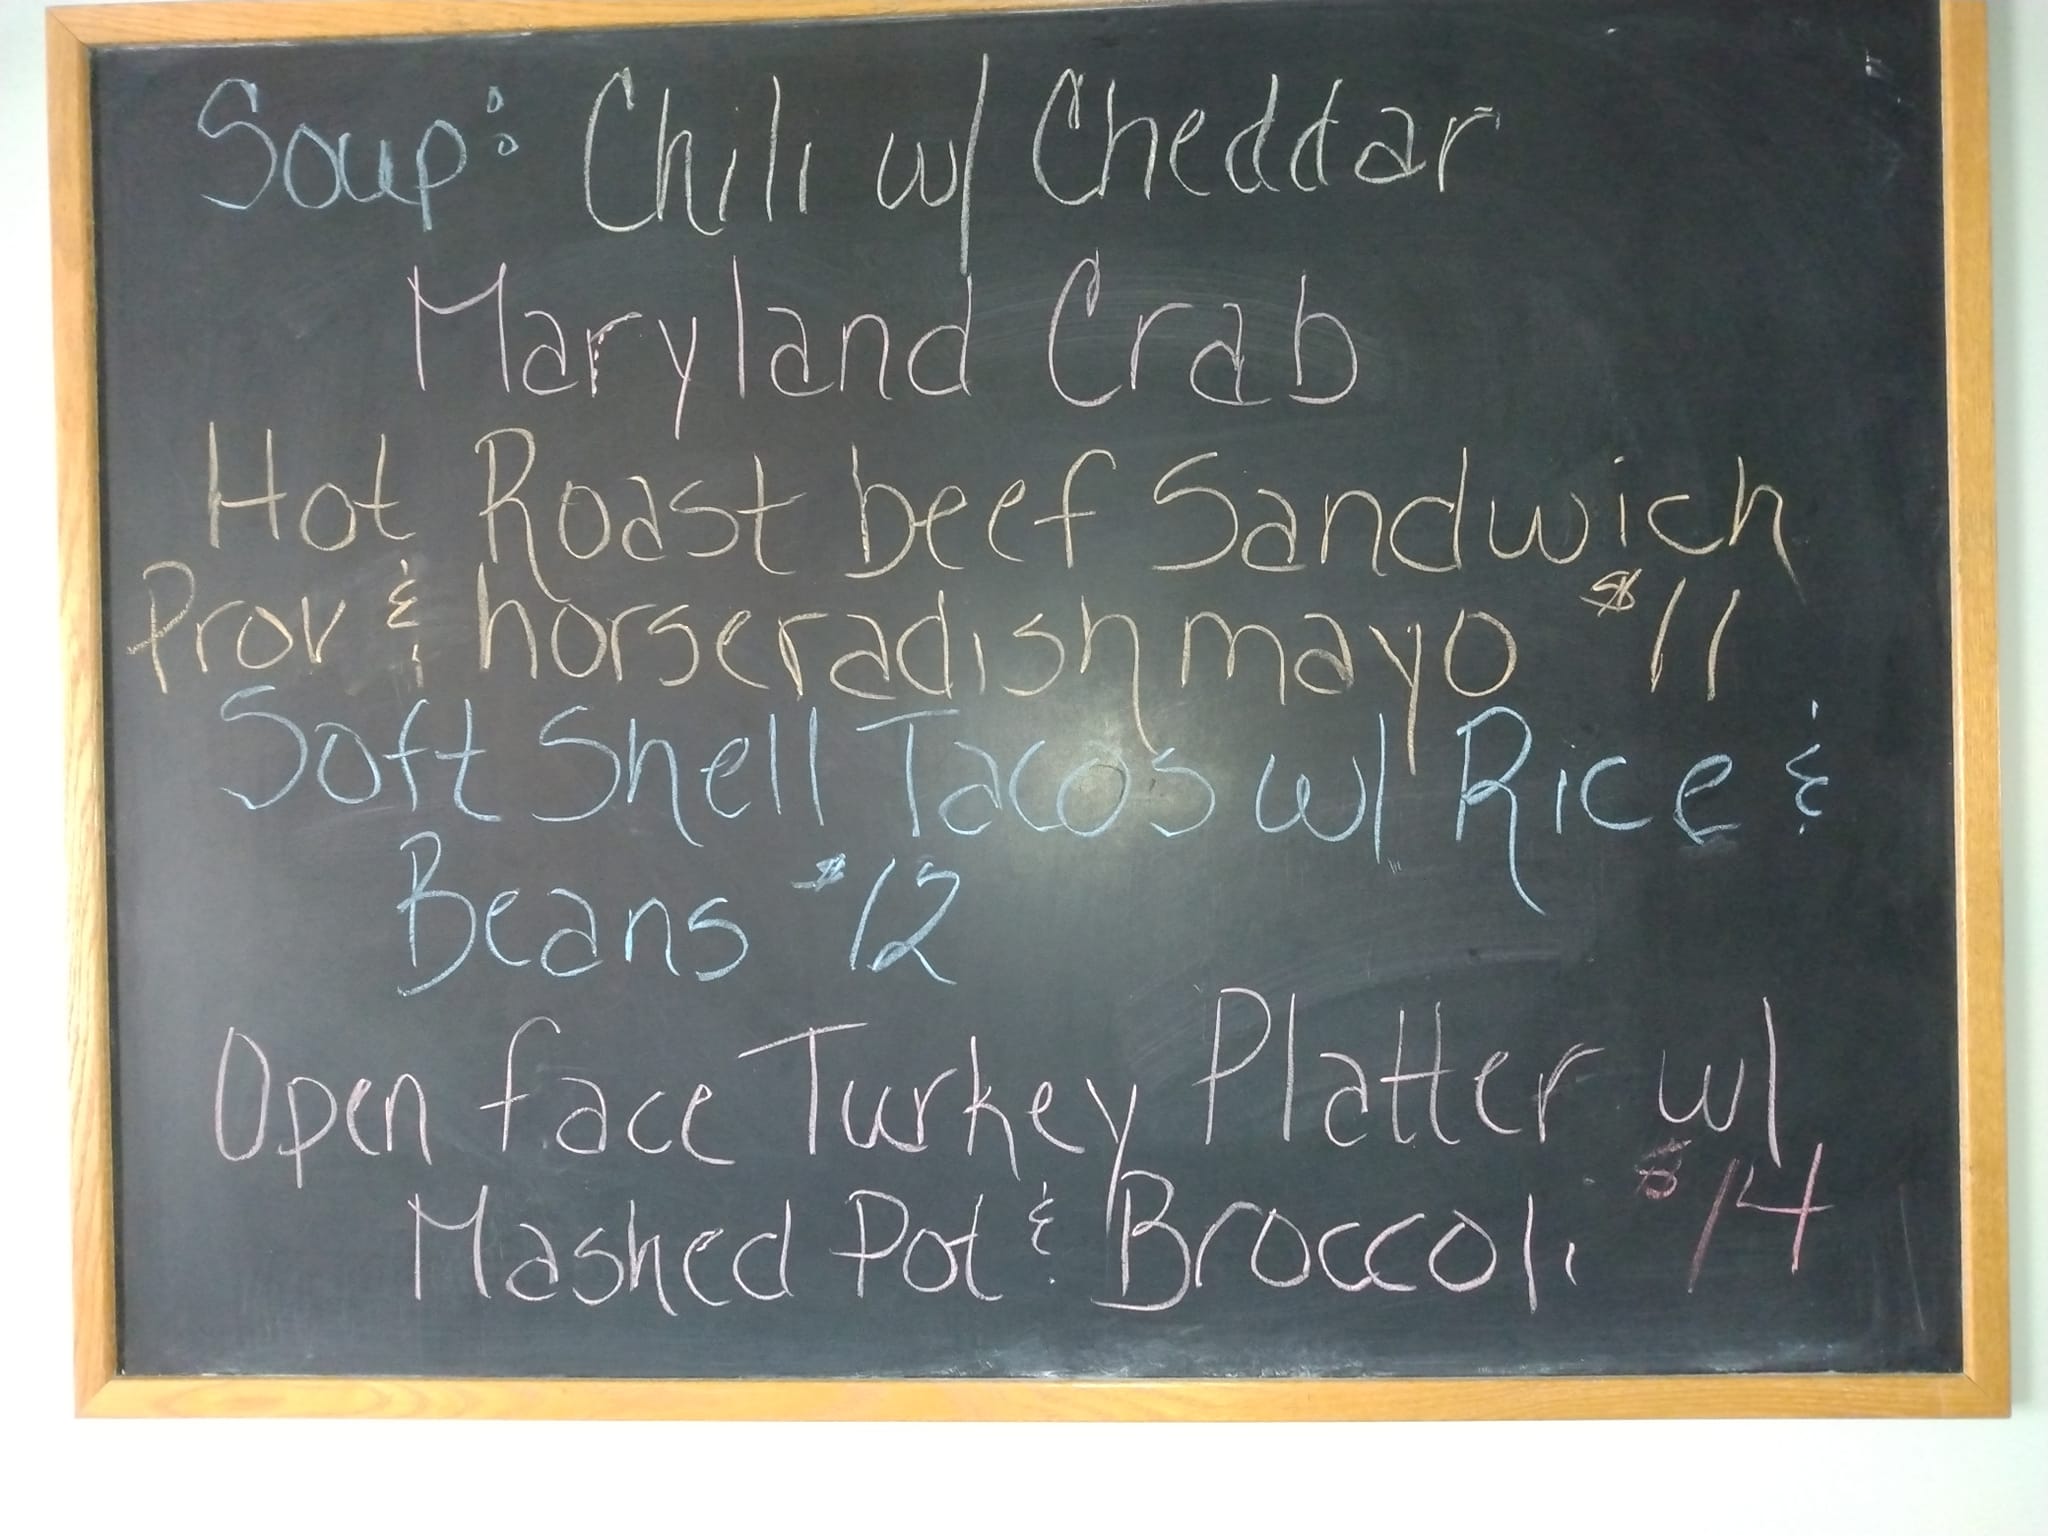 Soup: Chili w/ Cheddar
Maryland Crab
Hot Roast beef Sandwich
Prov & horseradish mayo $11
Soft Shell Tacos w/ Rice &
Beans $12
Open face Turkey Platter w/
Mashed Pot & Broccoli $14